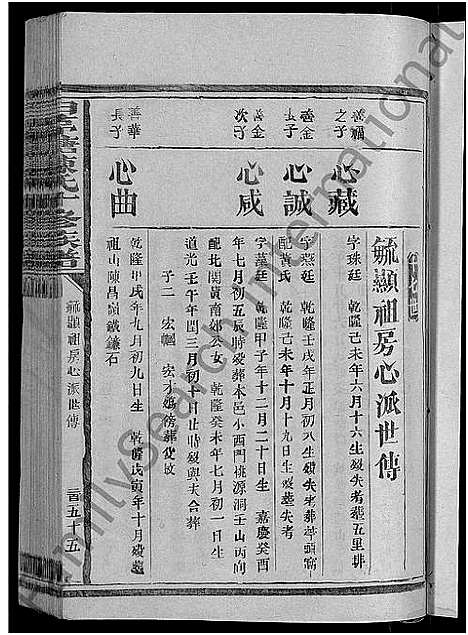 毓顯祖房心派世傳
善福之子
心藏
字珠廷 乾隆己未年六月十六生歿失考葬五里排
善金長子
心誠
字燕廷 乾隆壬戌年正月初八生歿失考葬
配黃氏 乾隆己未年十月十九日生歿葬失考
善金次子
心咸
字蔓廷 乾隆甲子年十二月二十日生 嘉慶癸酉
年七月初五辰時歿葬本邑小西門桃源洞壬山丙向
配北関黃南郊公女 乾隆癸未年七月初一日生
道光壬午年閏三月初十日丑時歿與夫合葬
子二 宏輊 宏才
善華長子
心曲
乾隆甲戌年九月初九日生 乾隆戊寅年十月歿葬
祖山陳昌嶺鐵鐮石
陳氏十修族譜
毓顯祖房心派世傳
五十五
FamilySearch International